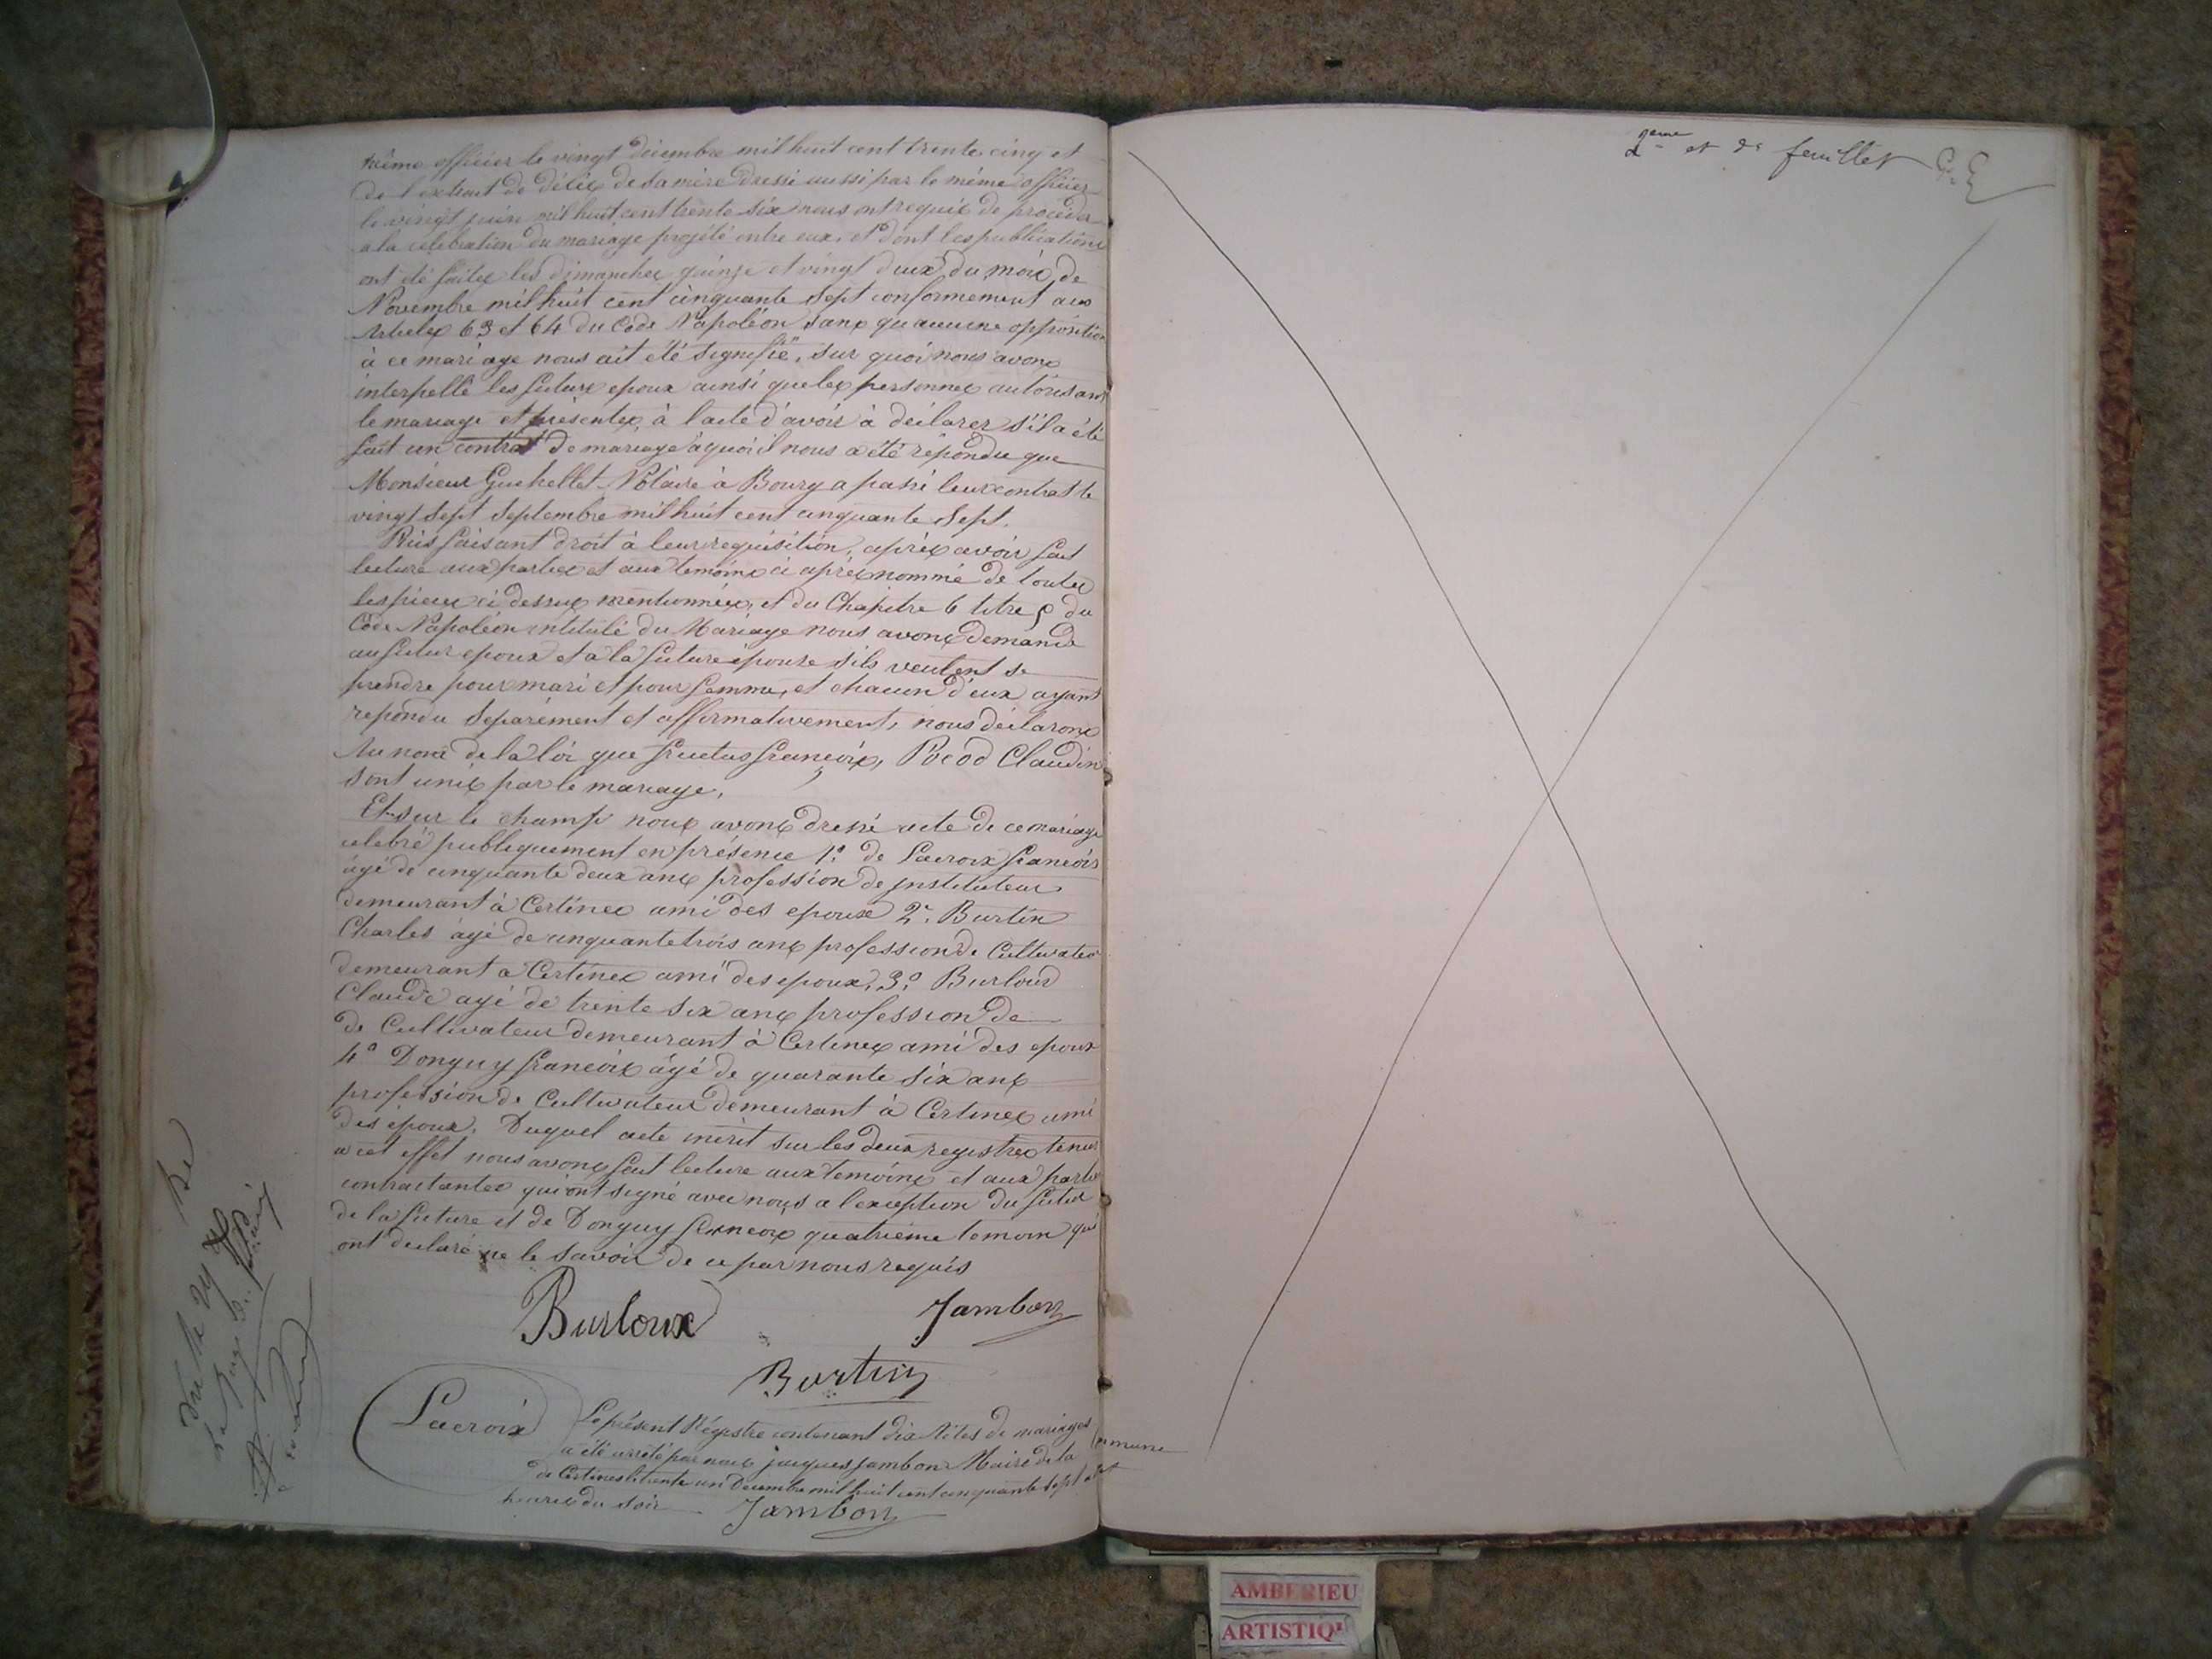 même officier le vingt décembre mil huit cent trente cinq et
de l'extrait de décès de sa mère dressé aussi par le même officier
le vingt juin mil huit cent trente six nous ont requis de procéder
a la celebration du mariage projété entre eux, et dont les publications
ont été faites les dimanches quinze et vingt deux du mois de
Novembre mil huit cent cinquante sept conformement aux
Articles 63 et 64 du Code Napoléon sans qu'aucune opposition
à ce mariage nous ait été signifiée, sur quoi nous avons
interpellé les futurs epoux ainsi que les personnes autorisant
le mariage et présentes à l'acte d'avoir à déclarer s'il a été
fait un contrat de mariage à quoi il nous a été répondu que
Monsieur Notaire à Bourg a passé leur contrat le
vingt sept Septembre mil huit cent cinquante Sept.
Puis faisant droit à leur requisition, après avoir fait
lecture aux parties et aux temoins ci après nommé de toutes
les pièces ci dessus mentionnées, et du Chapitre 6 titre 5 du
Code Napoléon intitulé du Mariage nous avons demandé
au futur epoux et a la future épouse s'ils veulent se
prendre pour mari et pour femme, et chacun d'eux ayant
repondu Separément et affirmativement, nous déclarons
Au nom de la loi que fructus françois, Pocod Claudin
sont unis par le mariage.
Et sur le champ nous avons dressé acte de ce mariage
celebré publiquement en présence 1.° de Lacroix françois
âgé de cinquante deux ans profession de instituteur
demeurant à Certines ami des epoux 2.° Burtin
Charles âgé de cinquante trois ans profession de Cultivateur
demeurant a Certines ami des epoux, 3.° Burloud
Claude agé de trente six ans profession de
de Cultivateur demeurant à Certines ami des epoux
4° Donguy françois âgé de quarante six ans
profession de Cultivateur demeurant à Certines ami
des époux. Duquel acte inscrit sur les deux registres tenus
a cet effet nous avons fait lecture aux temoins et aux parties
contractantes qui ont signé avec nous a l'exception du futur
de la future et de Donguy françois quatrième temoin qui
ont declaré ne le savoir de ce par nous requis
Burloux Jambon
Burtin
Lacroix
Le présent Régistre contenant dix Actes de mariages
a été arrêté par nous jacques Jambon Maire de la Commune
de Certines le trente un Decembre mil huit cent cinquante Sept
heures du soir Jambon
2eme et der feuillet
AMBERIEU
ARTISTIQ